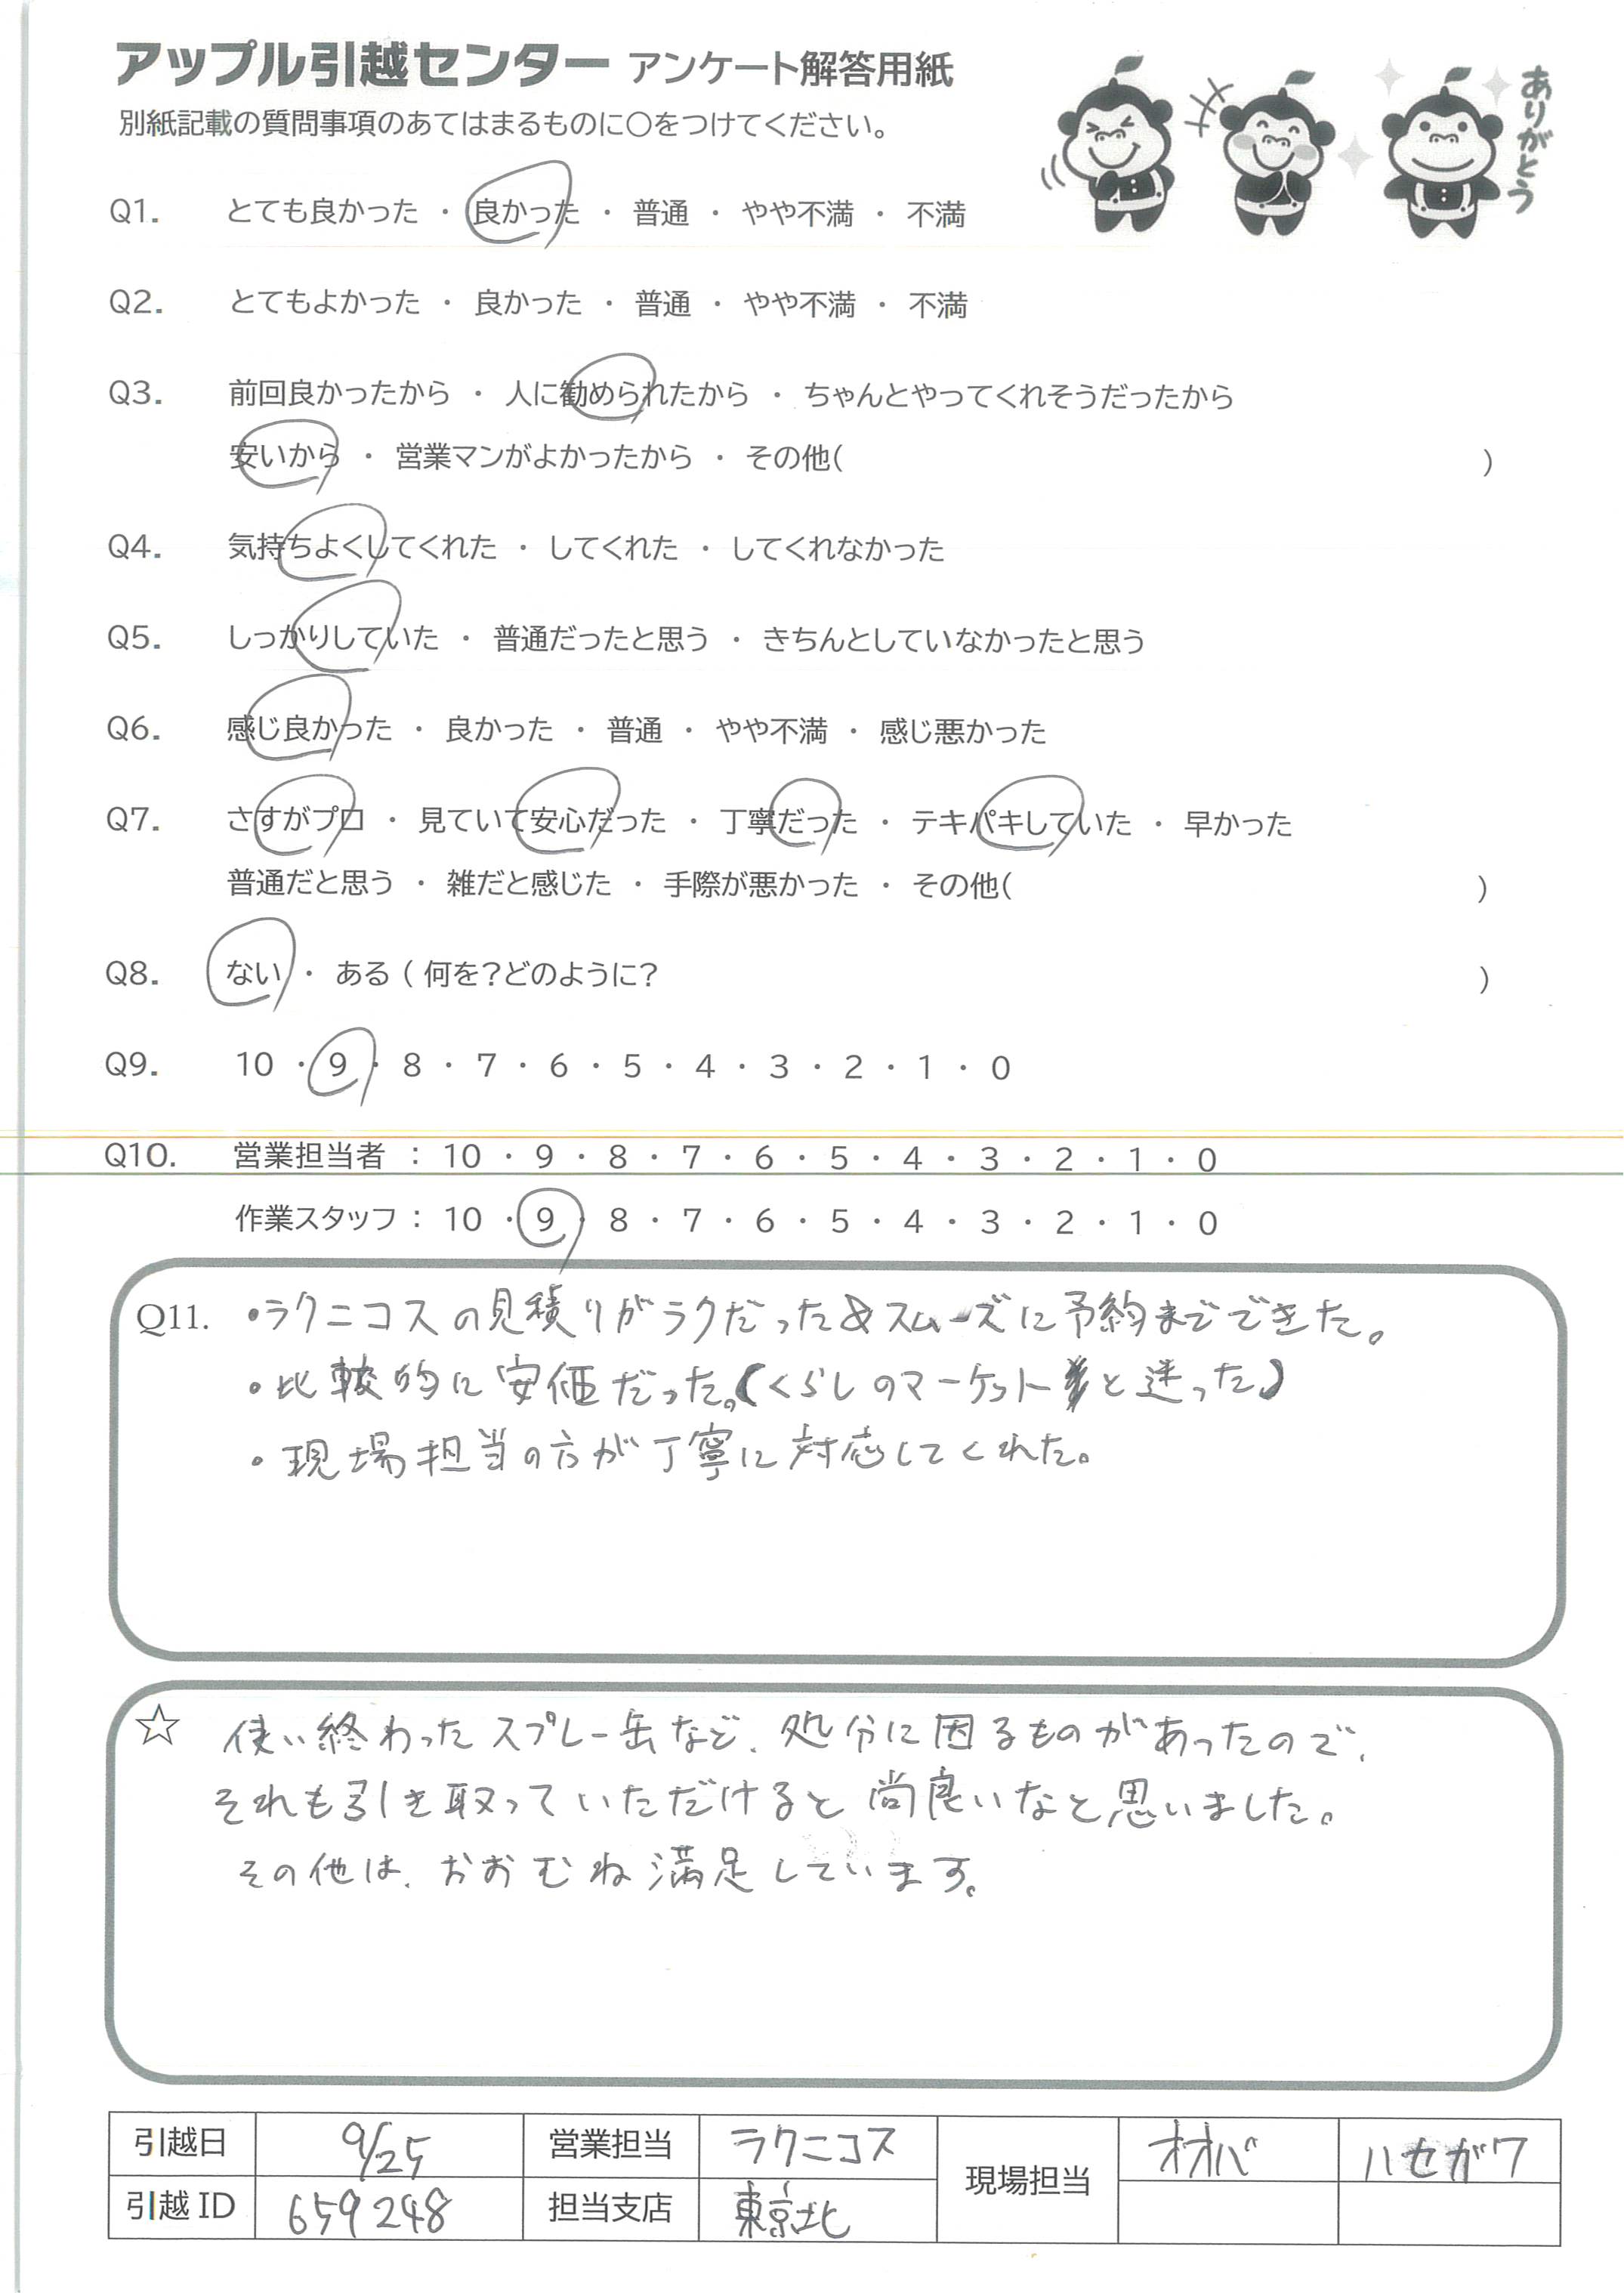 アップル引越センター アンケート解答用紙
別紙記載の質問事項のあてはまるものに○をつけてください。
ありがとう
Q1. とても良かった ・ 良かった ・ 普通 ・ やや不満 ・ 不満
Q2. とてもよかった ・ 良かった ・ 普通 ・ やや不満 ・ 不満
Q3. 前回良かったから ・ 人に勧められたから ・ ちゃんとやってくれそうだったから
安いから ・ 営業マンがよかったから ・ その他( )
Q4. 気持ちよくしてくれた ・ してくれた ・ してくれなかった
Q5. しっかりしていた ・ 普通だったと思う ・ きちんとしていなかったと思う
Q6. 感じ良かった ・ 良かった ・ 普通 ・ やや不満 ・ 感じ悪かった
Q7. さすがプロ ・ 見ていて安心だった ・ 丁寧だった ・ テキパキしていた ・ 早かった
普通だと思う ・ 雑だと感じた ・ 手際が悪かった ・ その他( )
Q8. ない ・ ある ( 何を?どのように? )
Q9. 10 ・ 9 ・ 8 ・ 7 ・ 6 ・ 5 ・ 4 ・ 3 ・ 2 ・ 1 ・ 0
Q10. 営業担当者 : 10 ・ 9 ・ 8 ・ 7 ・ 6 ・ 5 ・ 4 ・ 3 ・ 2 ・ 1 ・ 0
作業スタッフ : 10 ・ 9 ・ 8 ・ 7 ・ 6 ・ 5 ・ 4 ・ 3 ・ 2 ・ 1 ・ 0
Q11. ・ラクニコスの見積りがラクだった&スムーズに予約までできた。
・比較的に安価だった。(くらしのマーケットと迷った)
・現場担当の方が丁寧に対応してくれた。
☆ 使い終わったスプレー缶など、処分に困るものがあったので、
それも引き取っていただけると尚良いなと思いました。
その他は、おおむね満足しています。
引越日 9/25 営業担当 ラクニコス 現場担当 オオバ ハセガワ
引越 ID 659248 担当支店 東京北